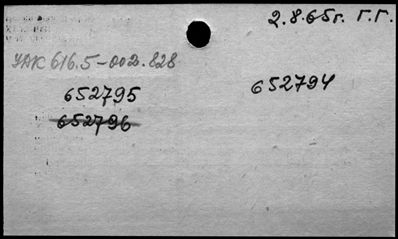 2.8.65г. Г.Г.
УДК 616.5-002.828
652795 652794
652796